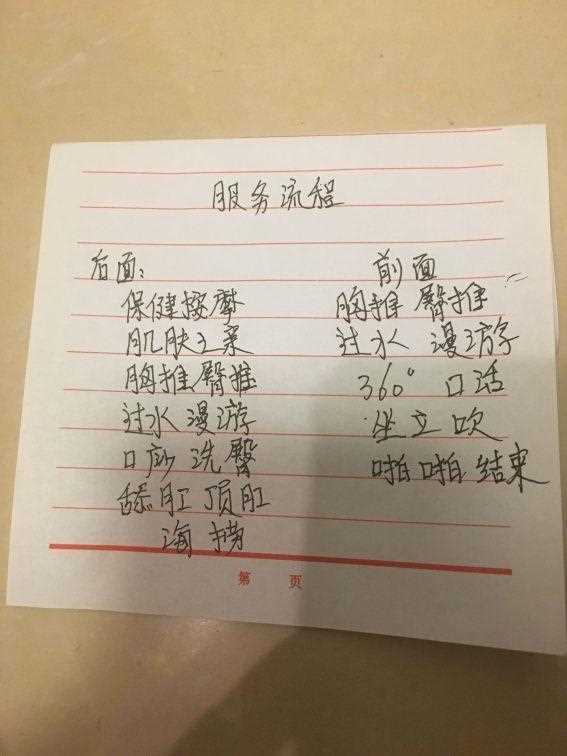 服务流程
后面：
保健按摩
肌肤之亲
胸推臀推
过水漫游
口爱洗臀
舔肛顶肛
海捞
前面
胸推臀推
过水 漫游
360° 口活
坐立吹
啪啪结束
第 页